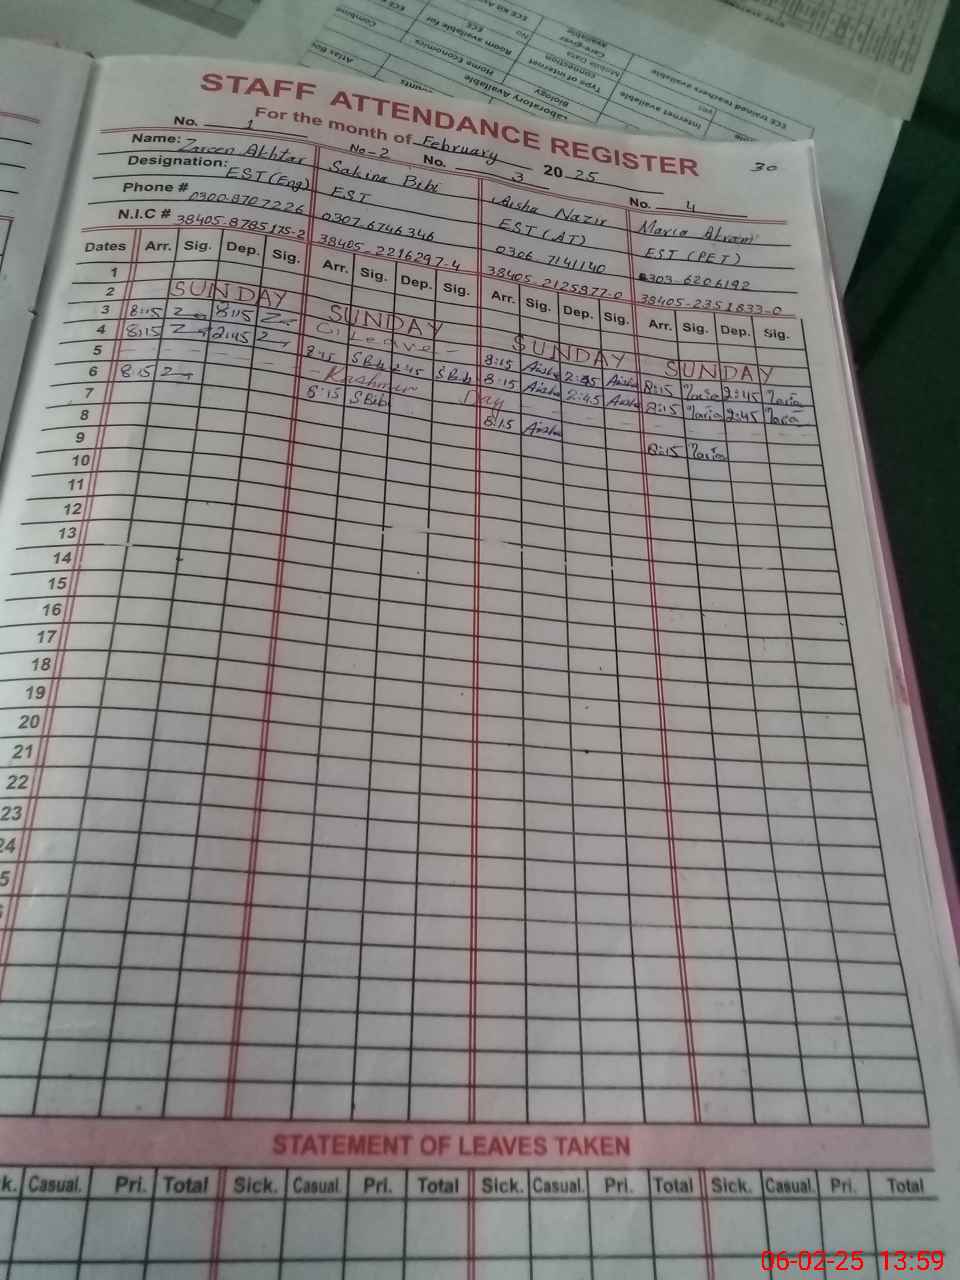 STAFF ATTENDANCE REGISTER
For the month of February 2025
30
No. 1 No-2 No. 3 No. 4
Name: Zareen Akhtar Sakina Bibi Aisha Nazir Maria Akram
Designation: EST (Eng) EST EST (AT) EST (PET)
Phone # 0300-8707226 0307-6746346 0306-7141140 0303-6206192
N.I.C # 38405-8785175-2 38405-2216297-4 38405-2125977-0 38405-2351833-0
Dates Arr. Sig. Dep. Sig. Arr. Sig. Dep. Sig. Arr. Sig. Dep. Sig. Arr. Sig. Dep. Sig.
1
2 SUNDAY SUNDAY SUNDAY SUNDAY
3 8:15 8:15 Leave 8:15 Aisha 2:45 Aisha 8:15 Maria 2:45 Maria
4 8:15 2:45 8:15 SBib 2:45 SBib 8:15 Aisha 2:45 Aisha 8:15 Maria 2:45 Maria
5 Kashmir Day
6 8:15 8:15 SBibi 8:15 Aisha 8:15 Maria
7
8
9
10
11
12
13
14
15
16
17
18
19
20
21
22
23
24
5
STATEMENT OF LEAVES TAKEN
k. Casual. Pri. Total Sick. Casual. Pri. Total Sick. Casual. Pri. Total Sick. Casual. Pri. Total
06-02-25 13:59